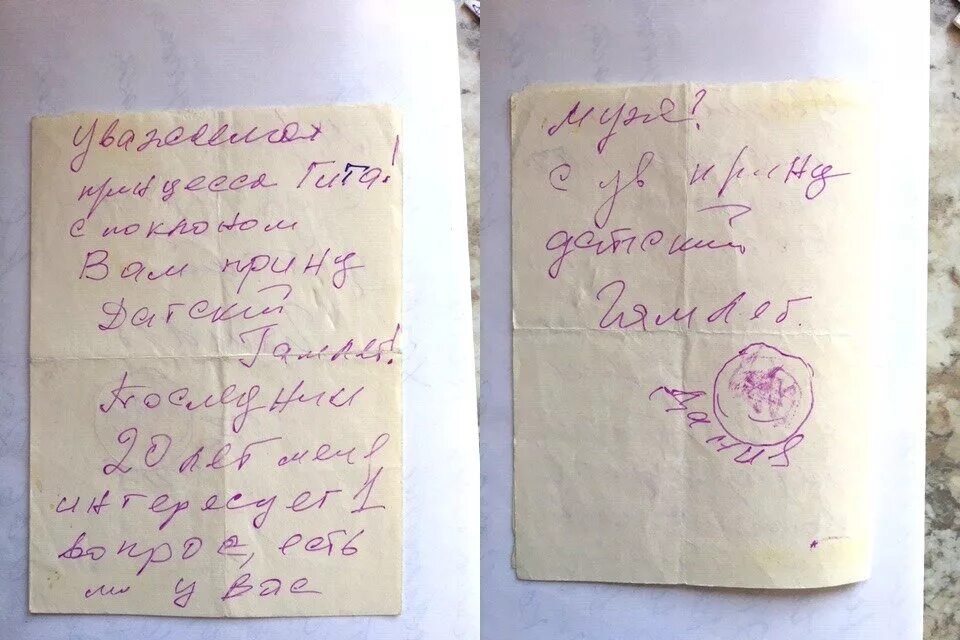 уважаемая
принцесса Гита!
с поклоном
Вам принц
Датский
Гамлет!
Последнии
20 лет меня
интересует 1
вопрос, есть
ли у Вас
мужя?
с ув принц
датский
Гямлет.
Дания